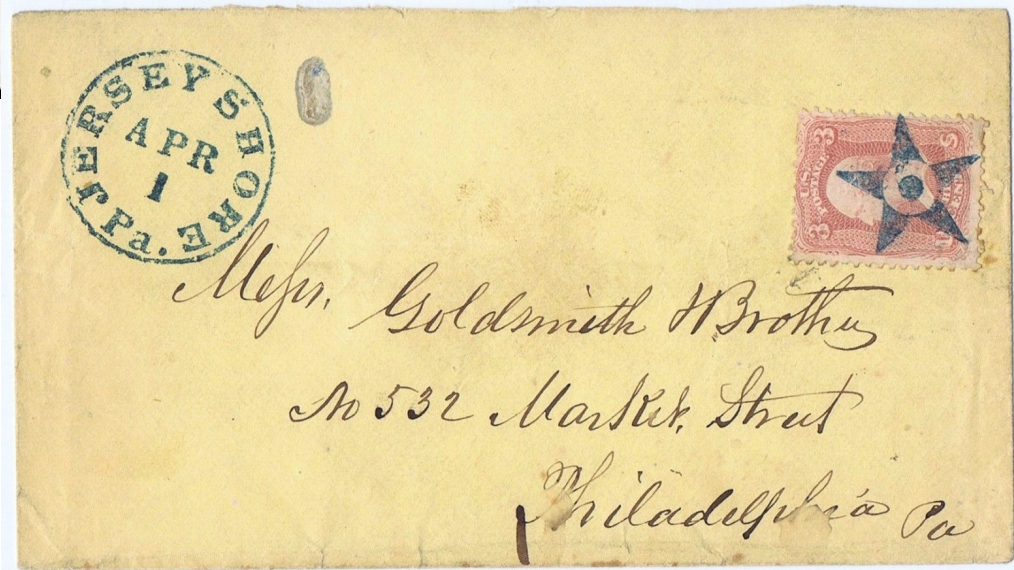 JERSEY SHORE
Pa.
APR
1
3 3
U.S. POSTAGE
Messrs. Goldsmith & Brothers
No 532 Market. Street
Philadelphia Pa